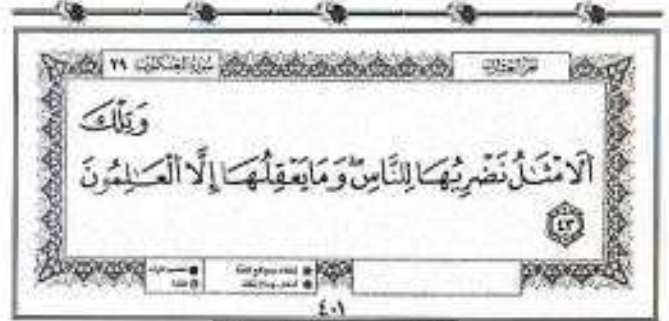 سورة العنكبوت ٢٩
الجزء العشرون
وَتِلْكَ
ٱلْأَمْثَٰلُ نَضْرِبُهَا لِلنَّاسِ ۖ وَمَا يَعْقِلُهَا إِلَّا ٱلْعَٰلِمُونَ
٤٣
٤٠١